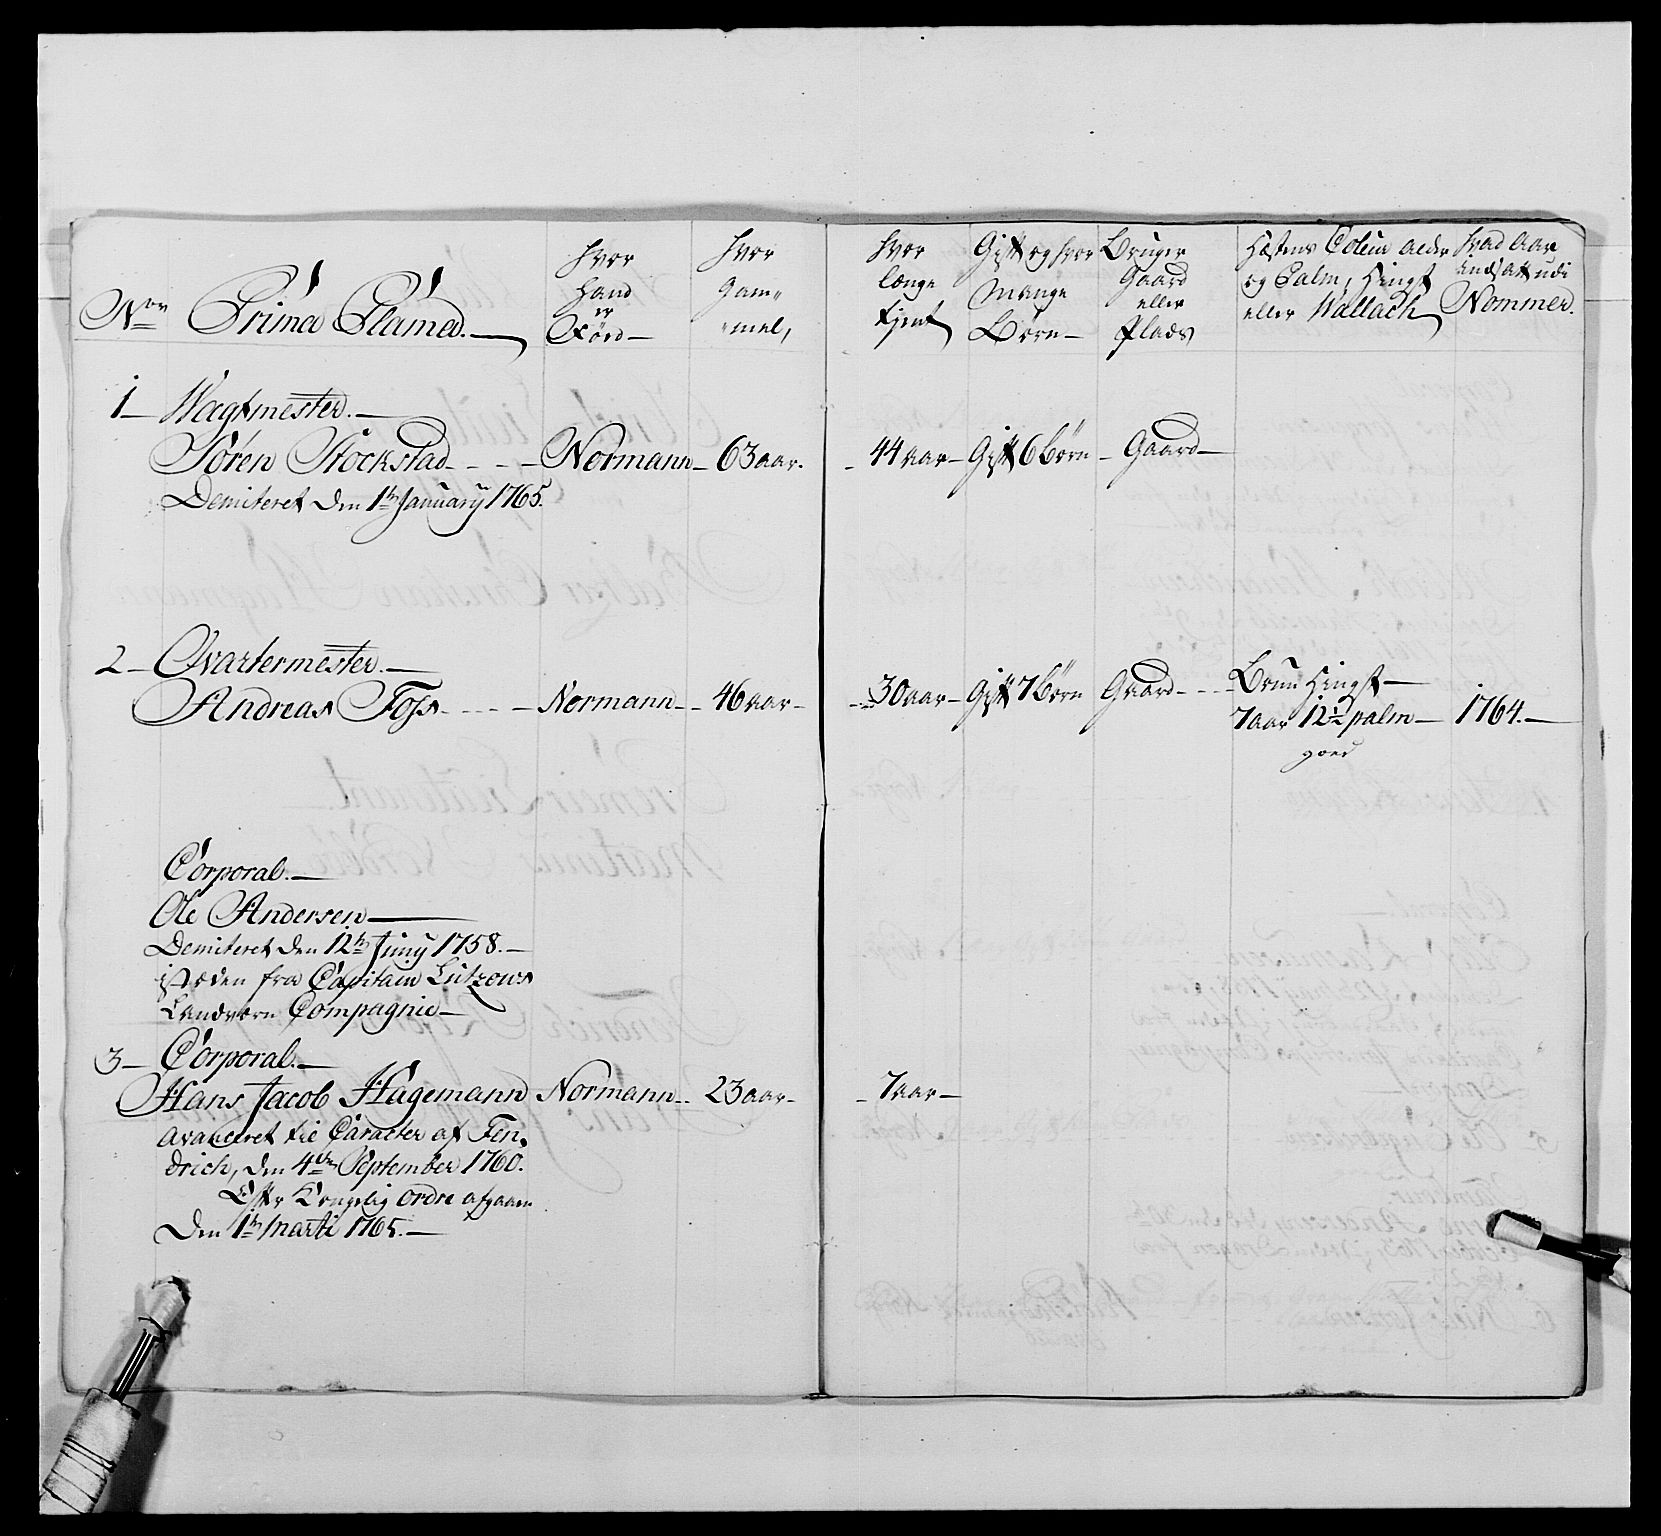 Nor Prima Plana.
hvor
hand
er
Född
hvor
Gam„
„mel,
hvor
længe
tjent
Gift og hvor
mange
Börn
Bruger
Gaard
eller
Plads
Hæstens Coleur alder
og Palm, Hingst
eller Wallach
hvad Aar
indsatt udi
Nommer.
1 Wagtmester.
Sören Stockstad Normann 63 aar. 44 aar Gift 6 börn Gaard
Demiteret den 1te January 1765.
2 Qvartermester.
Andreas Foss Normann 46 aar 30 aar Gift 7 börn Gaard Brun Hingst
7 aar 12½ palm 1764.
goed
Corporal.
Ole Andersen
Demiteret den 12te Juny 1758.
istæden fra Capitain Lützows
Landværn Compagnie
3 Corporal.
Hans Jacob Hagemann Normann 23 aar 7 aar
avanceret til Caracter af Fen„
drich, den 4de September 1760.
Efter Kongelig ordre afgaaen
Den 1te Marti 1765.